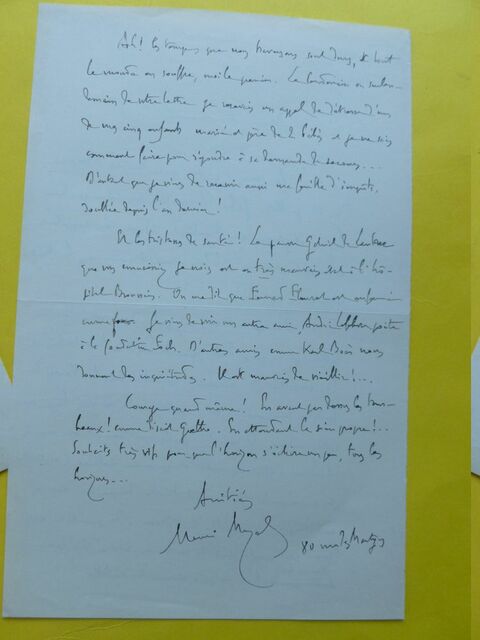 Ah! les temps que nous traversons sont durs, et tout
le monde en souffre, moi le premier. Le lendemain ou surlen-
demain de votre lettre je recevais un appel de détresse d'un
de mes cinq enfants marié et père de 2 bébés et je ne sais
comment faire pour répondre à sa demande de secours...
D'autant que je viens de recevoir aussi ma feuille d'impôts,
doublée depuis l'an dernier!
Et les tristesses de santé! Le pauvre Gabriel
que vous connaissiez je crois est en très mauvais état à l'hô-
pital Broussais. On me dit que Fernand Fleuret est enfermé
comme fou. Je viens de voir un autre ami André
à la fondation Foch. D'autres amis comme Karl Boès nous
donnent des inquiétudes. Il est mauvais de vieillir!...
Courage quand même! En avant par dessus les tom-
beaux! comme disait Goethe. En attendant le sien propre!..
Souhaits très vifs pour que l'horizon s'éclaire un peu, tous les
horizons...
Amitiés
80 rue des Martyrs